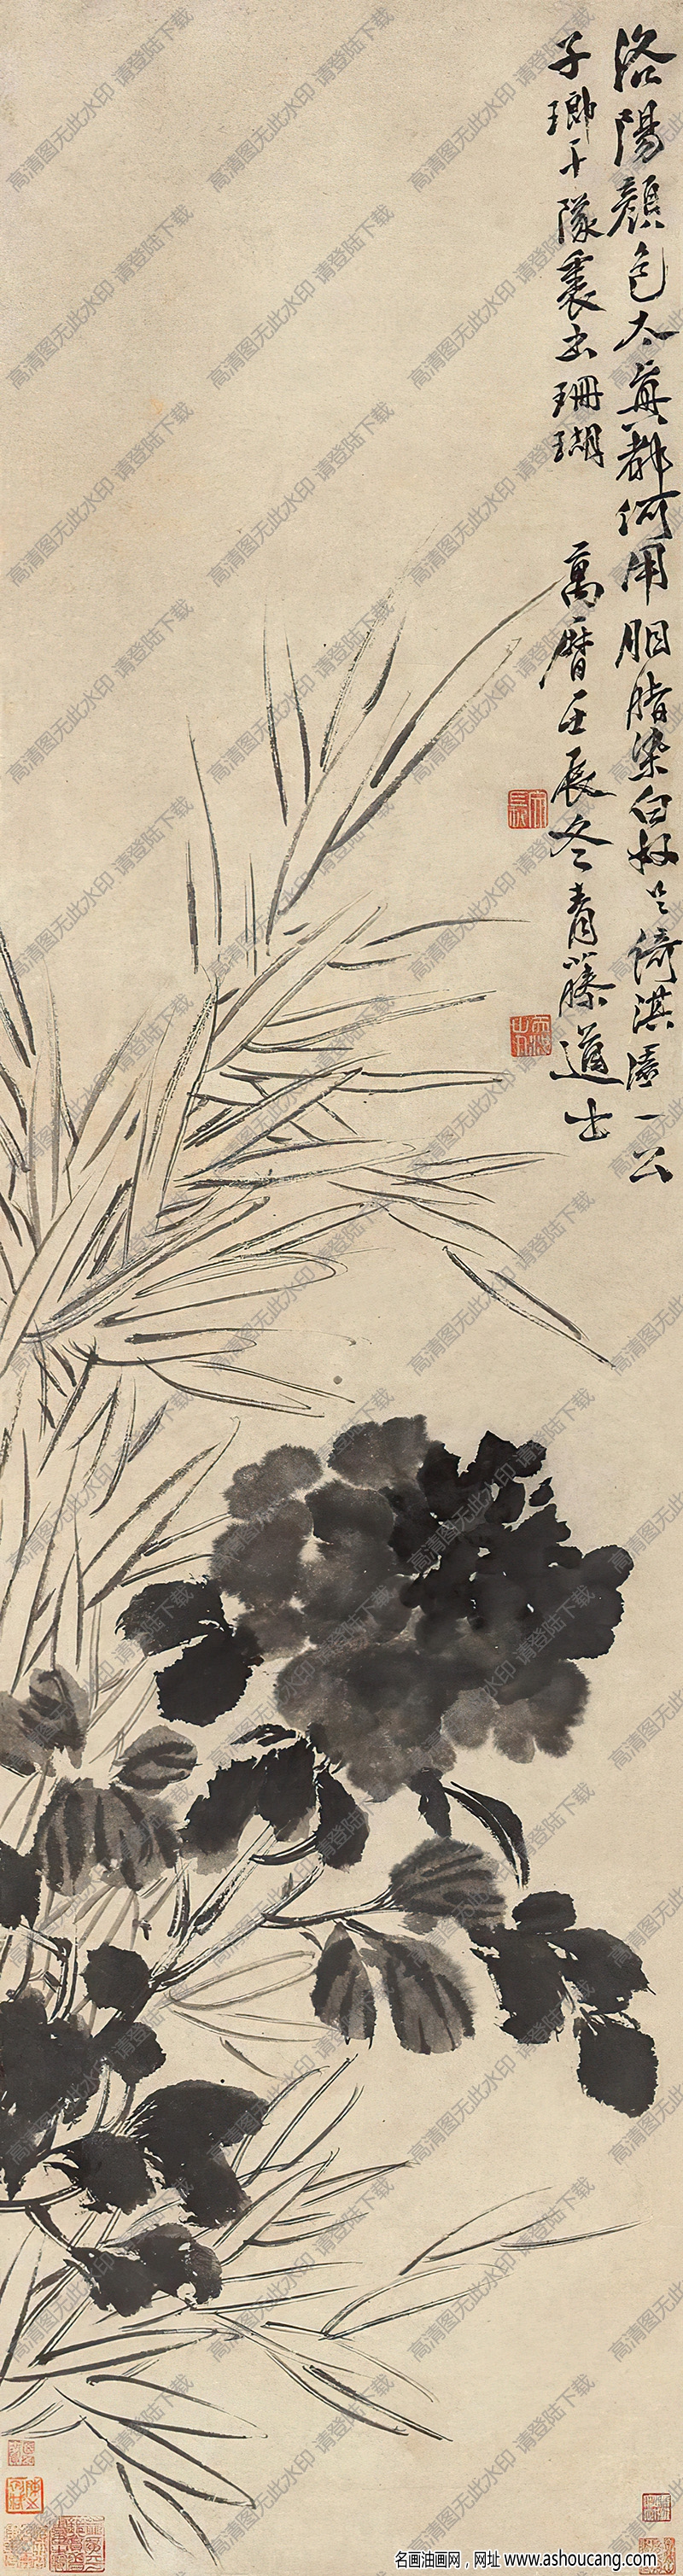 洛陽顏色太真都何用胭脂染白奴只倚淇園一公
子瑯干隊裏出珊瑚
萬曆壬辰冬青藤道士
高清图无此水印 请登陆下载
名画油画网，网址 www.ashoucang.com